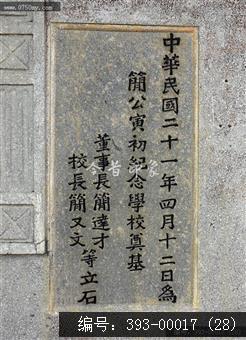 www.0750my.com
中華民國二十一年四月十二日為
簡公寅初紀念學校奠基
董事長簡達才
校長簡又文
等立石
编号：393-00017 (28)